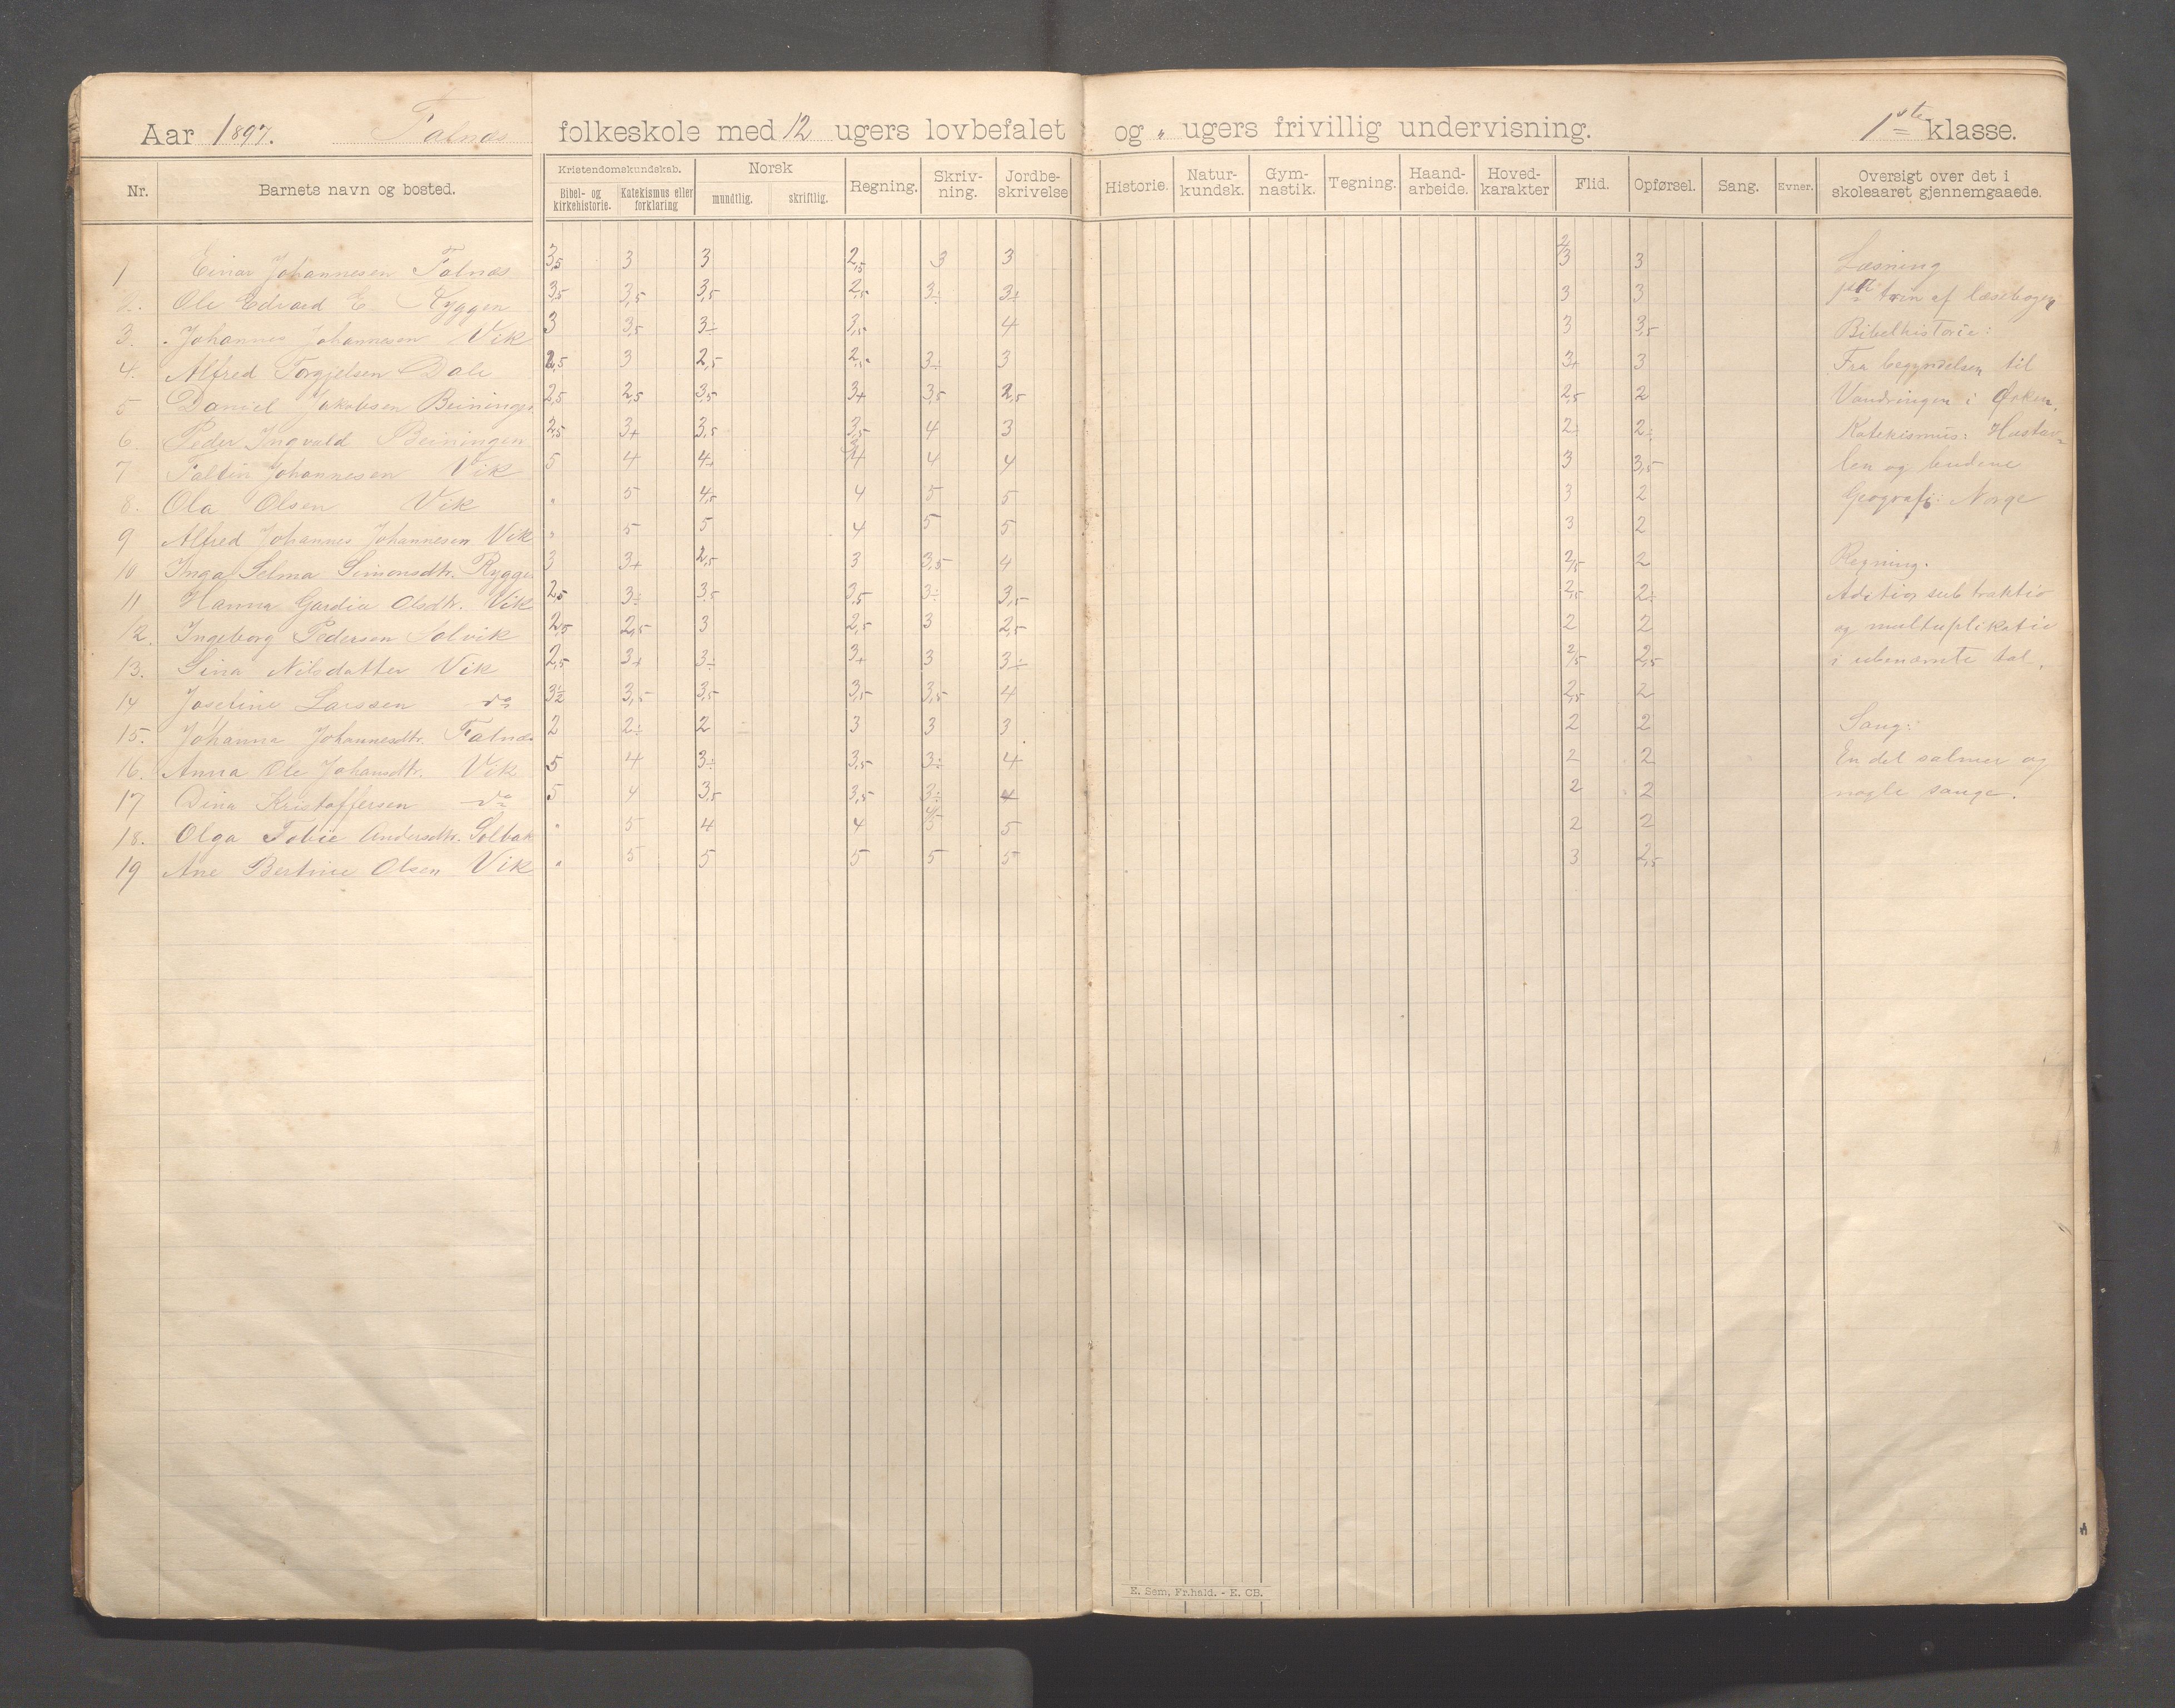 Aar 1897. Falnæs folkeskole med 12 ugers lovbefalet og " ugers frivillig undervisning. 1ste klasse.
Nr. Barnets navn og bosted. Kristendomskundskab. Bibel- og kirkehistorie. Katekismus eller forklaring Norsk mundtlig. skriftlig. Regning. Skriv-ning. Jordbe-skrivelse Historie. Natur-kundsk. Gym-nastik. Tegning. Haand-arbeide. Hoved-karakter Flid. Opførsel. Sang. Evner. Oversigt over det i skoleaaret gjennemgaaede.
1 Einar Johannesen Falnæs 3,5 3 3 2,5 3 3 3 3 Læsning
2. Ole Edvard E Ryggen 3,5 3,5 3,5 2,5 3÷ 3+ 3 3 1ste trin af læsebogen
3. Johannes Johannesen Vik 3 3,5 3÷ 3,5 4 3 3,5 Bibelhistorie:
4. Alfred Torgjelsen Dale 2,5 3 2,5 2,5 3÷ 3 3+ 3 Fra begyndelsen til
5 Daniel Jakobsen Beiningen 2,5 2,5 3,5 3+ 3,5 2,5 2,5 2 Vandringen i Ørken.
6. Peder Ingvald Beiningen 2,5 3+ 3,5 3,5 4 3 2÷ 2÷ Katekismus: Hustav-
7 Johannesen Vik 5 4 4+ 4 4 4 3 3,5 len og budene
8. Ola Olsen Vik " 5 4,5 4 5 5 3 2 Geografi: Norge
9 Alfred Johannes Johannesen Vik " 5 5 4 5 5 3 2
10 Inga Selma Simonsdtr. Ryggen 3 3+ 2,5 3 3,5 4 2,5 2 Regning.
11 Hanna Gardia Olsdtr. Vik 2,5 3÷ 3,5 3,5 3÷ 3,5 2,5 2÷ Adition subtraktio
12. Ingeborg Pedersen Solvik 2,5 2,5 3 2,5 3 2,5 2 2 og multiplikatio
13. Sina Nilsdatter Vik 2,5 3+ 3÷ 3+ 3 3÷ 2,5 2,5 i ubenævnte tal.
14 Josefine Larssen do 3½ 3,5 3,5 3,5 3,5 4 2,5 2
15. Johanna Johannesdtr. Falnæs 2 2÷ 2 3 3 3 2 2 Sang:
16. Anna Ole Johansdtr. Vik 5 4 3÷ 3,5 3÷ 4 2 2 En del salmer og
17 Dina Kristoffersen do 5 4 3,5 3,5 3÷ 4 2 2 nogle sange.
18. Olga Tobie Andersdtr. Solbak " 5 4 4 5 5 2 2
19 Ane Bertine Olsen Vik " 5 5 5 5 5 3 2,5
E. Sem. Fr.hald. - E. CB.